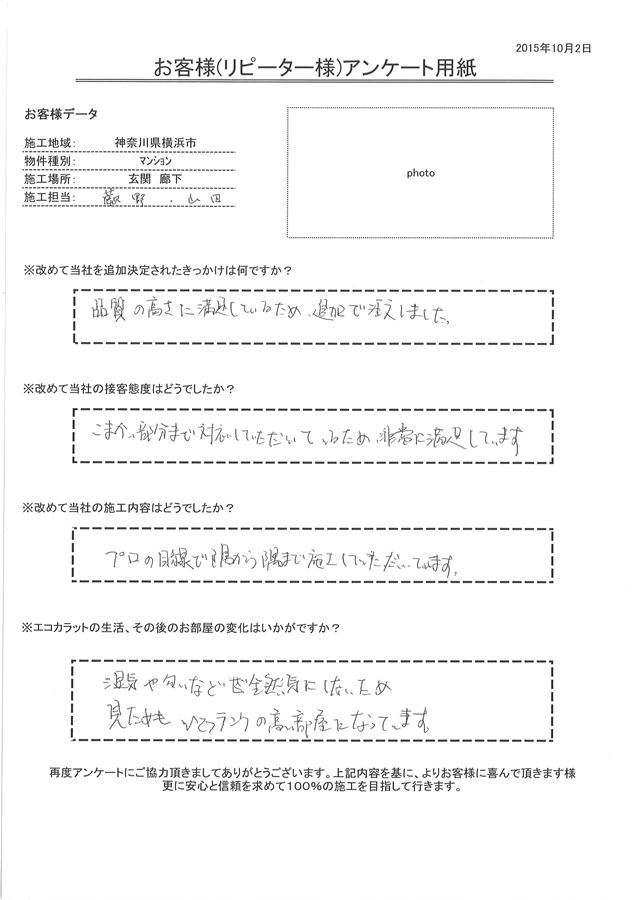 2015年10月2日
お客様(リピーター様)アンケート用紙
お客様データ
施工地域: 神奈川県横浜市
物件種別: マンション
施工場所: 玄関 廊下
施工担当: 藤野 . 山田
photo
※改めて当社を追加決定されたきっかけは何ですか?
品質の高さに満足しているため、追加で注文しました。
※改めて当社の接客態度はどうでしたか?
こまかい部分まで対応していただいているため、非常に満足しています
※改めて当社の施工内容はどうでしたか?
プロの目線で隅から隅まで施工していただいています。
※エコカラットの生活、その後のお部屋の変化はいかがですか?
湿気や匂いなど全然気にしないため
見ためも ひとつランクの高い部屋になっています。
再度アンケートにご協力頂きましてありがとうございます。上記内容を基に、よりお客様に喜んで頂きます様
更に安心と信頼を求めて100%の施工を目指して行きます。